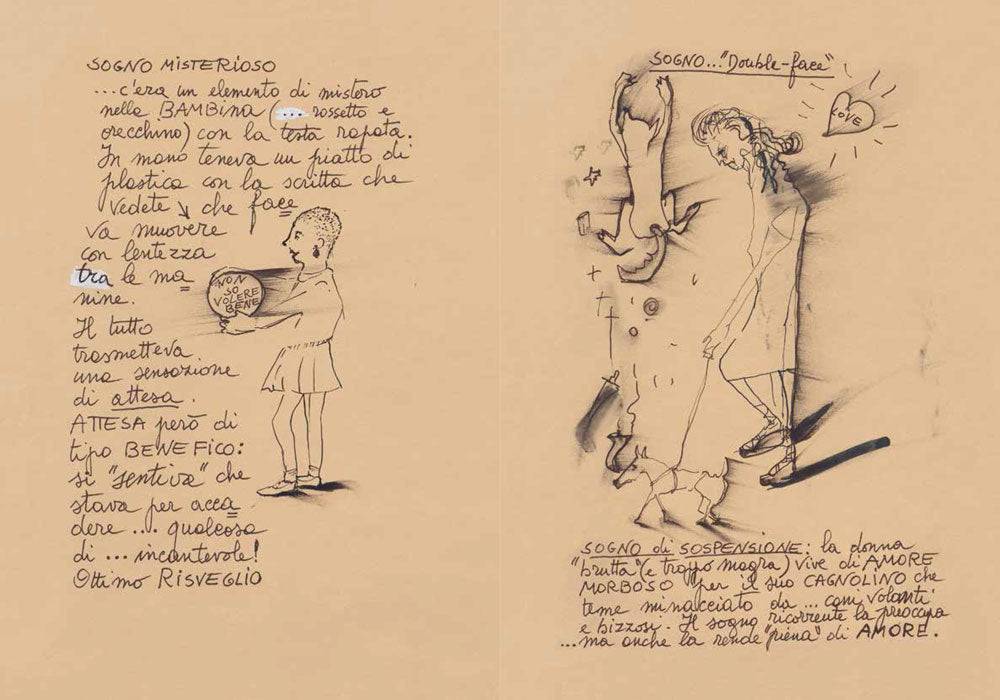 SOGNO MISTERIOSO
...c'era un elemento di mistero
nella BAMBINA (... rossetto e
orecchino) con la testa rapata.
In mano teneva un piatto di
plastica con la scritta che
vedete ↘ che face
va muovere
con lentezza
tra le ma
nine.
NON
SO
VOLERE
BENE
Il tutto
trasmetteva
una sensazione
di attesa.
ATTESA però di
tipo BENEFICO:
si "sentiva" che
stava per acca
dere ... qualcosa
di ... incantevole!
Ottimo RISVEGLIO
SOGNO..."Double-face"
LOVE
SOGNO di SOSPENSIONE: la donna
"brutta" (e troppo magra) vive di AMORE
MORBOSO per il suo CAGNOLINO che
teme minacciato da ... cani volanti
e bizzosi. Il sogno ricorrente la preoccupa
...ma anche la rende "piena" di AMORE.